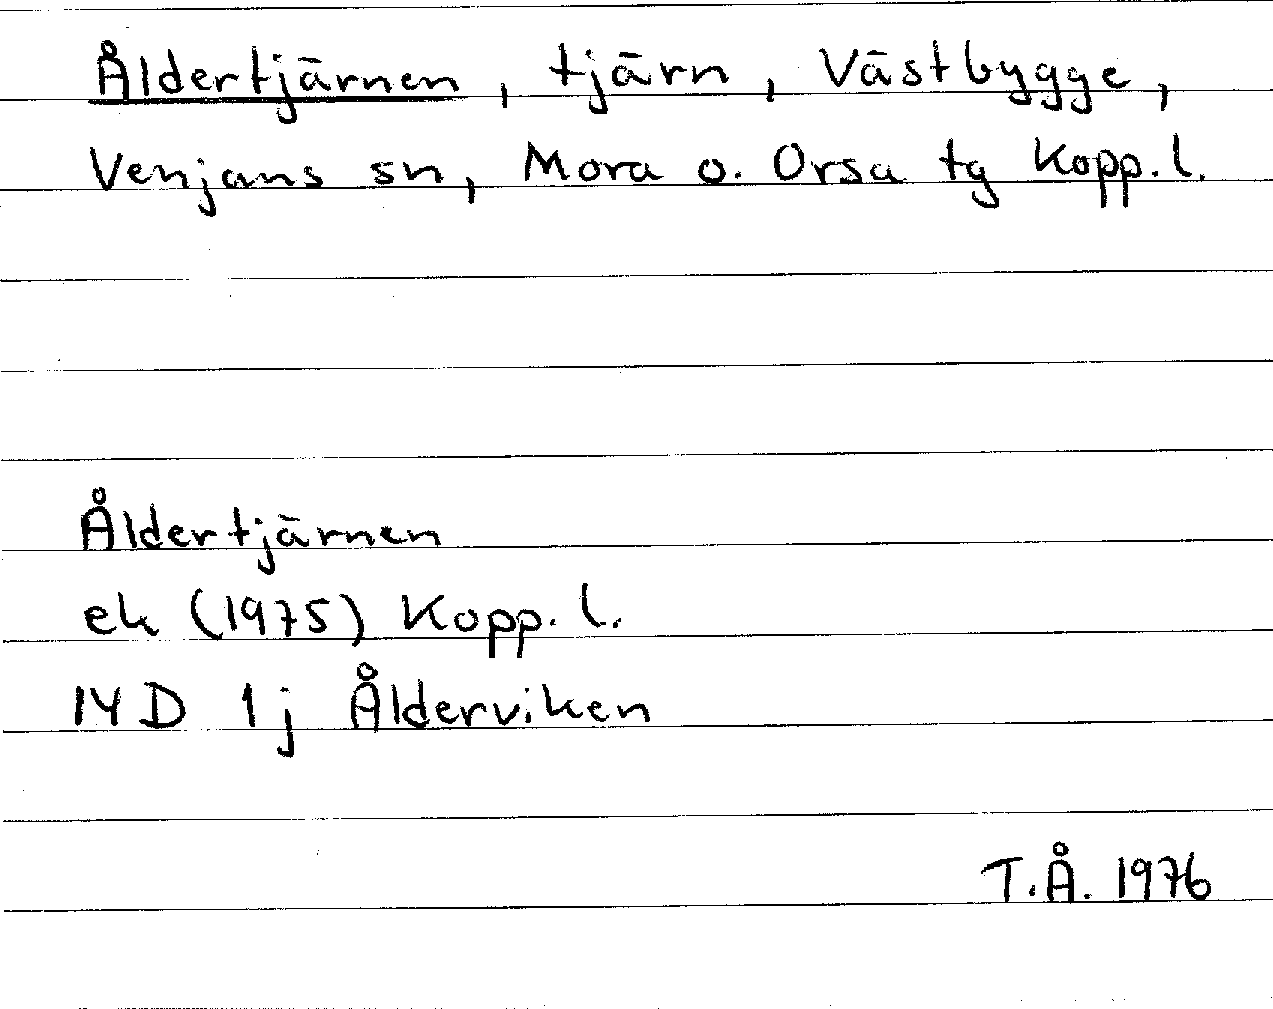 Åldertjärnen, tjärn, Västbygge,
Venjans sn, Mora o. Orsa tg Kopp. l.
Åldertjärnen
ek (1975) Kopp. l.
14 D 1j Ålderviken
T.Å. 1976